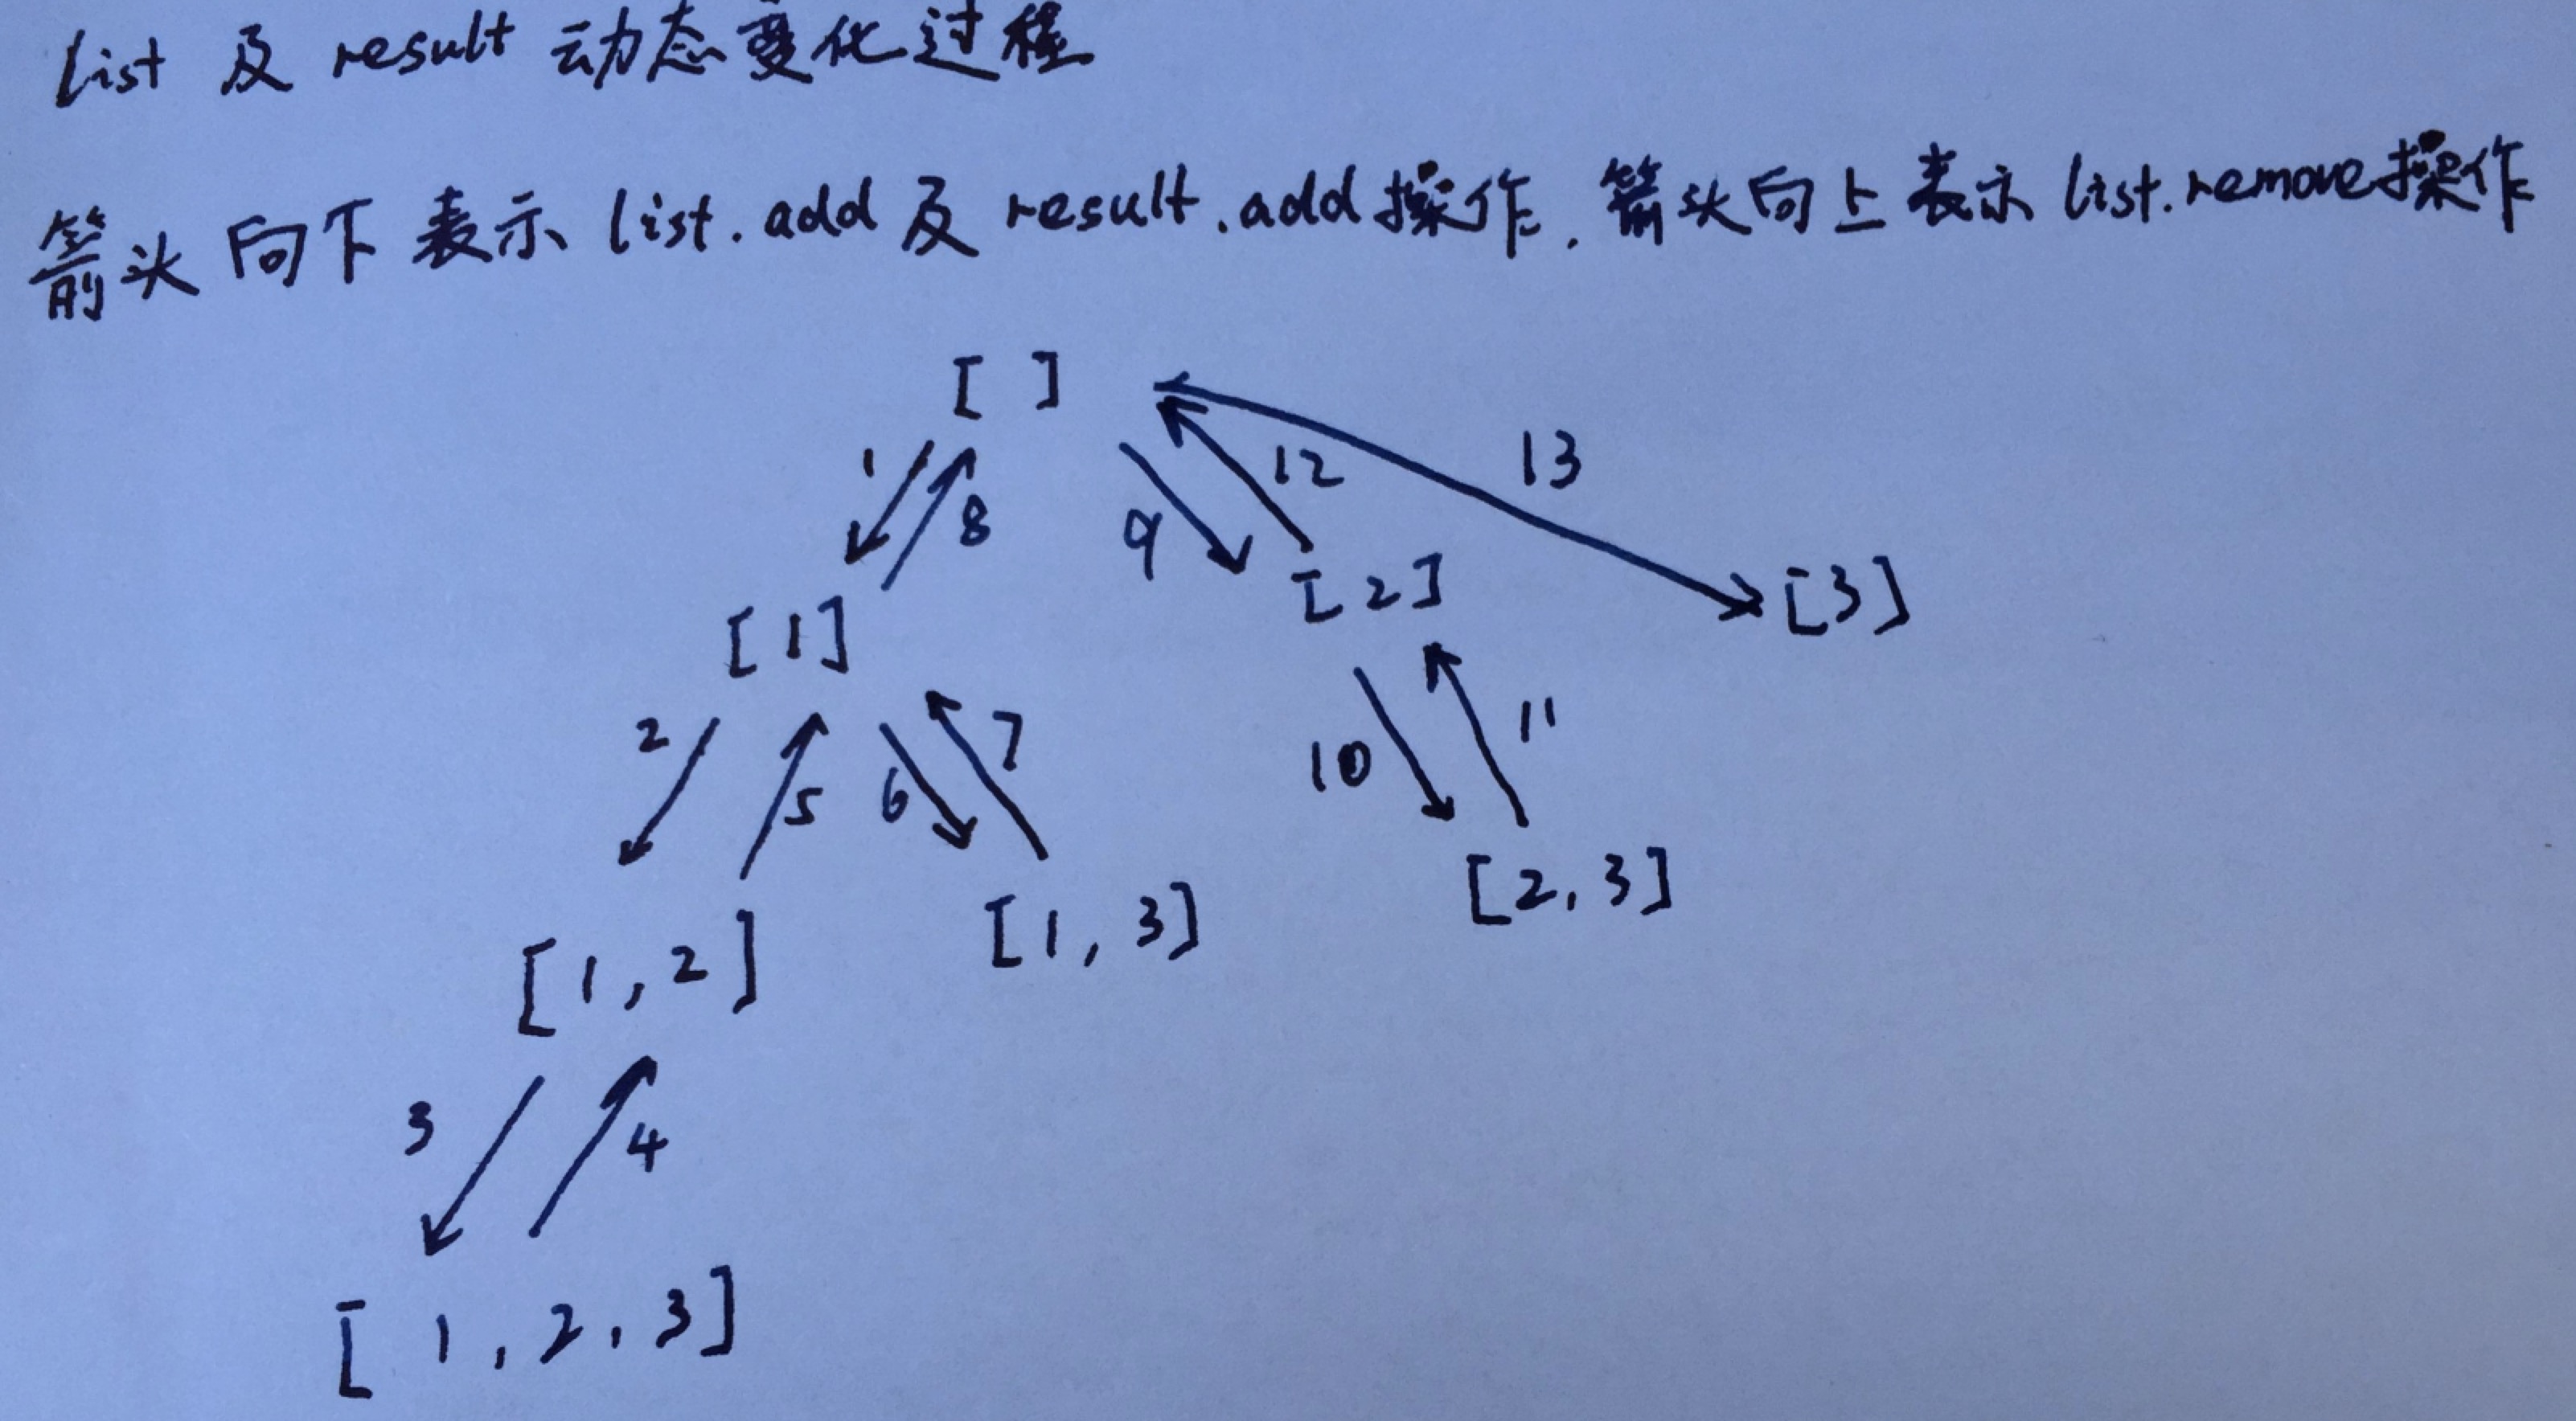 list 及 result 动态变化过程
箭头向下表示 list.add 及 result.add 操作, 箭头向上表示 list.remove操作
[ ]
1 8 9 12 13
[1] [2] [3]
2 5 6 7 10 11
[1,2] [1,3] [2,3]
3 4
[1,2,3]